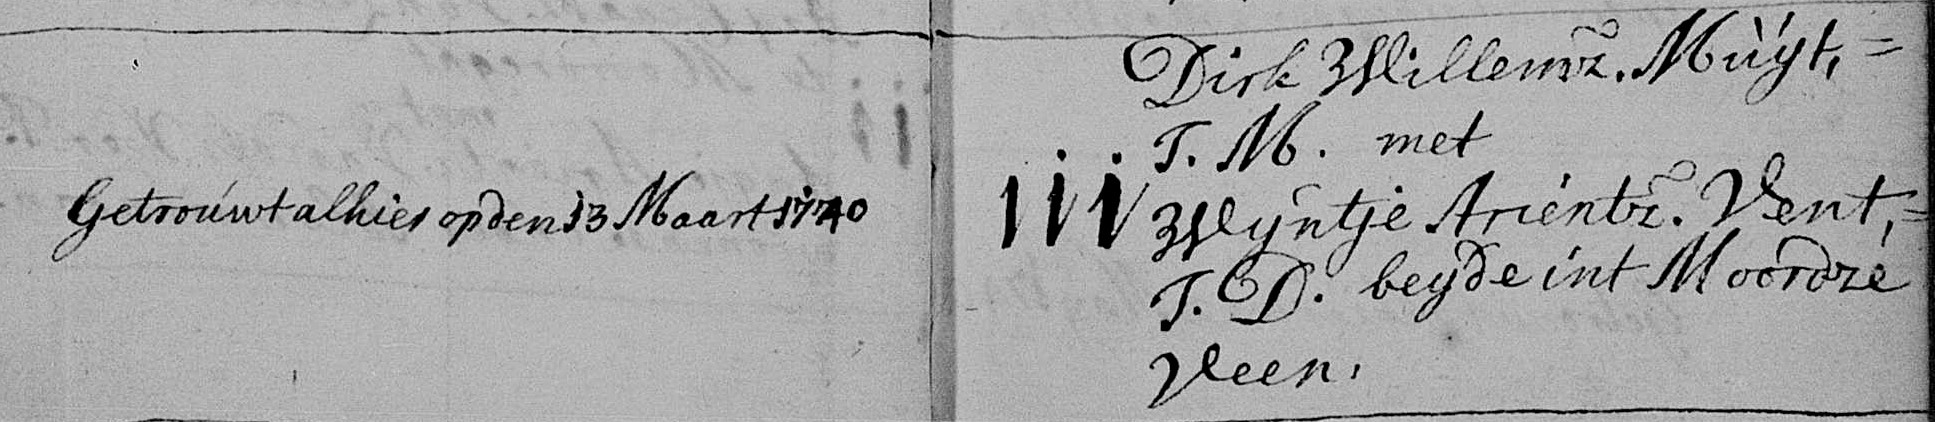 Getrouwt alhier op den 13 Maart 1740
Dirk Willemsz. Muÿt,=
J. M. met
iii Wÿntje Arientsz. Vent,=
J. D. beÿde int Moordze
Veen.